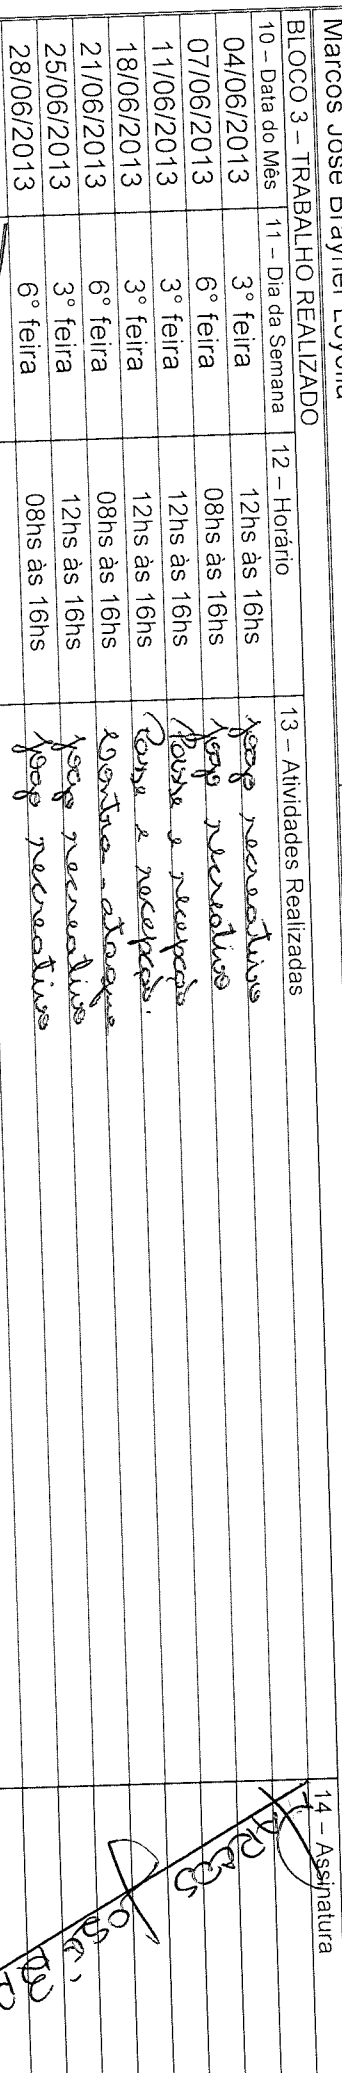 Marcos José Brayner Loyolla
BLOCO 3 – TRABALHO REALIZADO
10 – Data do Mês 11 – Dia da Semana 12 – Horário 13 – Atividades Realizadas 14 – Assinatura
04/06/2013 3° feira 12hs às 16hs jogo recreativo
07/06/2013 6° feira 08hs às 16hs jogo recreativo
11/06/2013 3° feira 12hs às 16hs Passe e recepção
18/06/2013 3° feira 12hs às 16hs Passe e recepção.
21/06/2013 6° feira 08hs às 16hs Contra-ataque
25/06/2013 3° feira 12hs às 16hs jogo recreativo
28/06/2013 6° feira 08hs às 16hs jogo recreativo